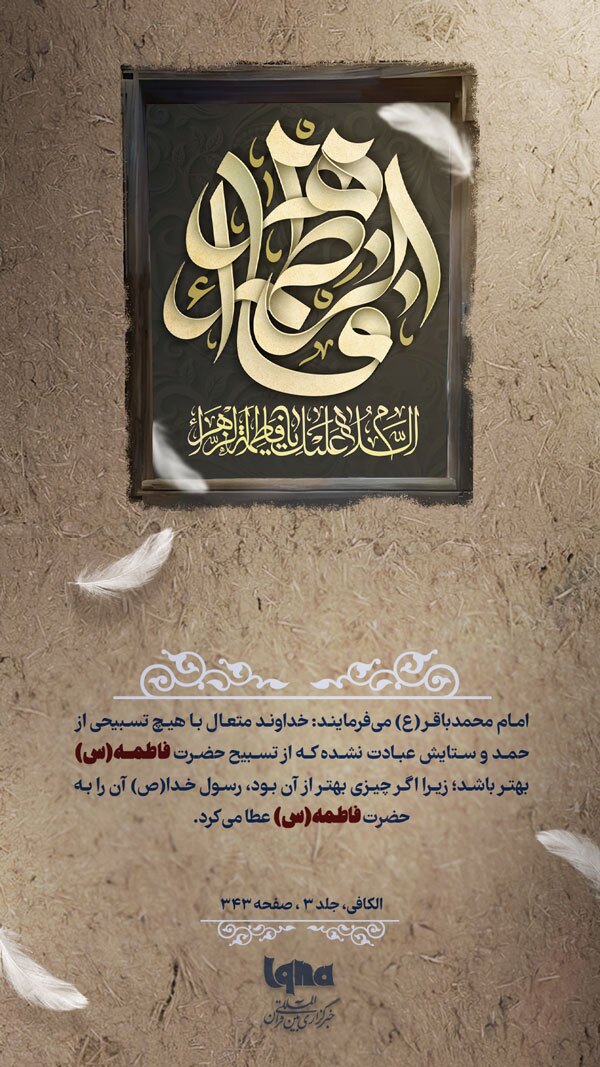 السلام علیک یا فاطمة الزهراء
امام محمدباقر(ع) می‌فرمایند: خداوند متعال با هیچ تسبیحی از
حمد و ستایش عبادت نشده که از تسبیح حضرت فاطمه(س)
بهتر باشد؛ زیرا اگر چیزی بهتر از آن بود، رسول خدا(ص) آن را به
حضرت فاطمه(س) عطا می‌کرد.
الکافی، جلد ۳، صفحه ۳۴۳
Iqna
خبرگزاری بین المللی قرآن